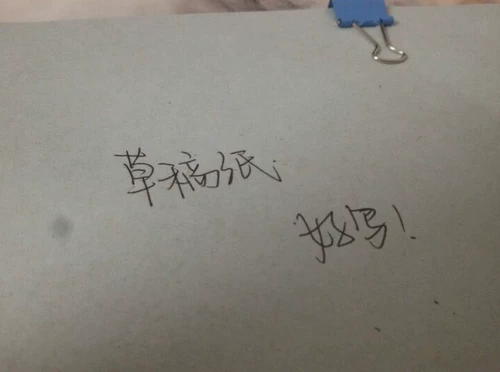 草稿纸.
好写!